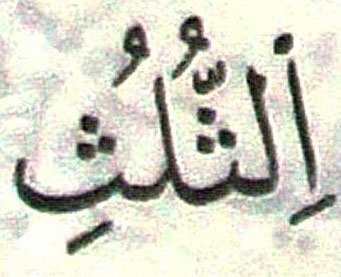 اِلثُّلُثِ